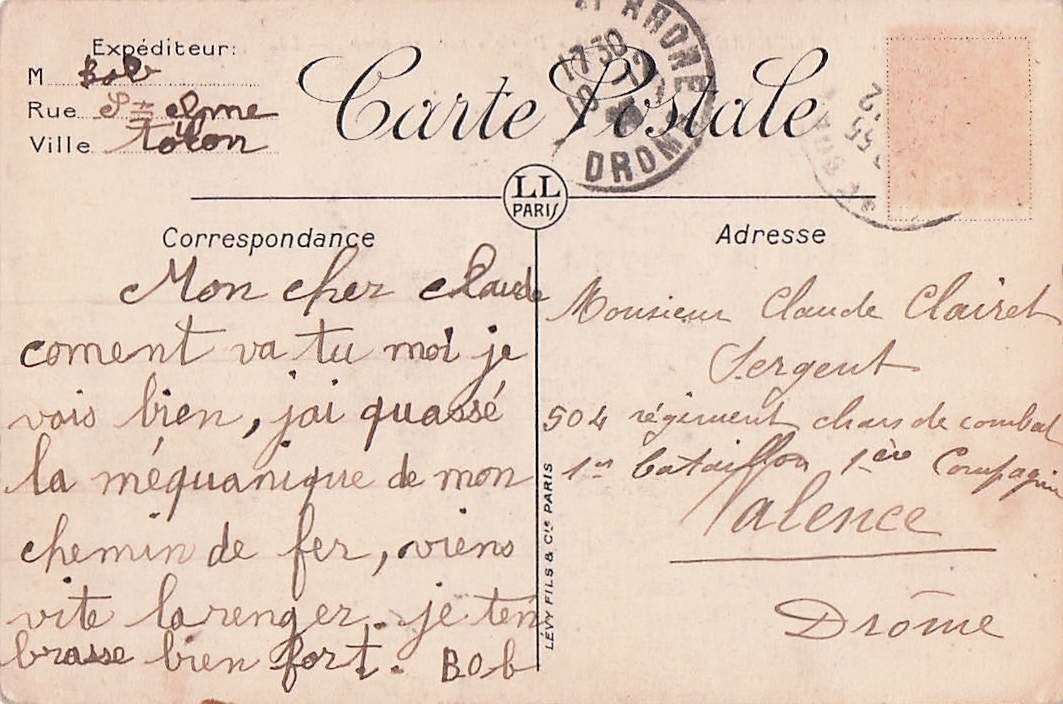 Expéditeur:
M Bob
Rue Ste elme
Ville Tolon
Carte Postale
RHONE
17 30
DROME
LL
PARIS
Correspondance
Mon cher Claude
coment va tu moi je
vois bien, jai quassé
la méquanique de mon
chemin de fer, viens
vite larenger. je ten
brasse bien fort. BOb
LÉVY FILS & Cie PARIS
Adresse
Monsieur Claude Clairet
Sergent
504 régiment chars de combat
1er bataillon 1ère Compagnie
Valence
Drôme